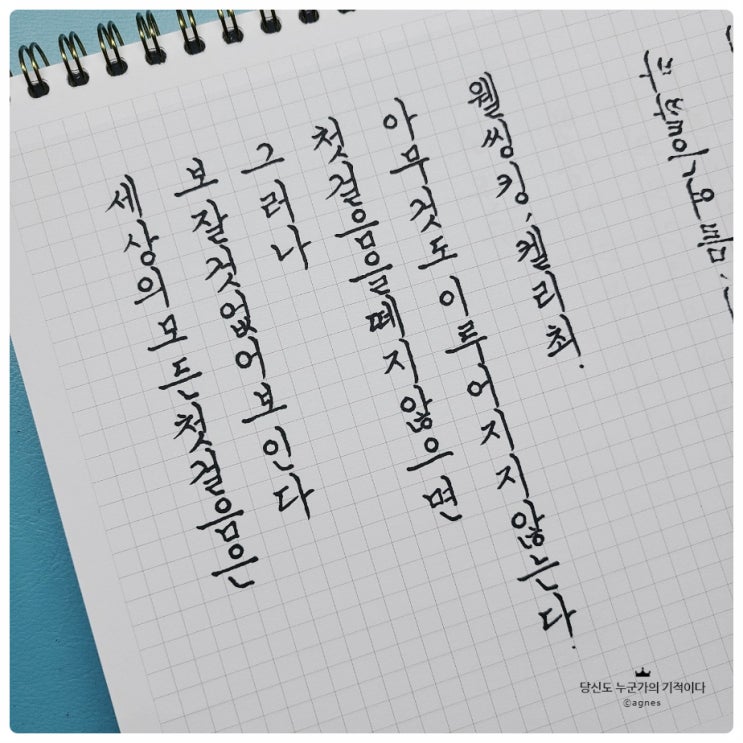 세상의 모든 첫걸음은
보잘것없어 보인다
그러나
첫걸음을 떼지 않으면
아무것도 이루어지지 않는다.
웰씽킹, 켈리 최.
당신도 누군가의 기적이다
ⓒagnes